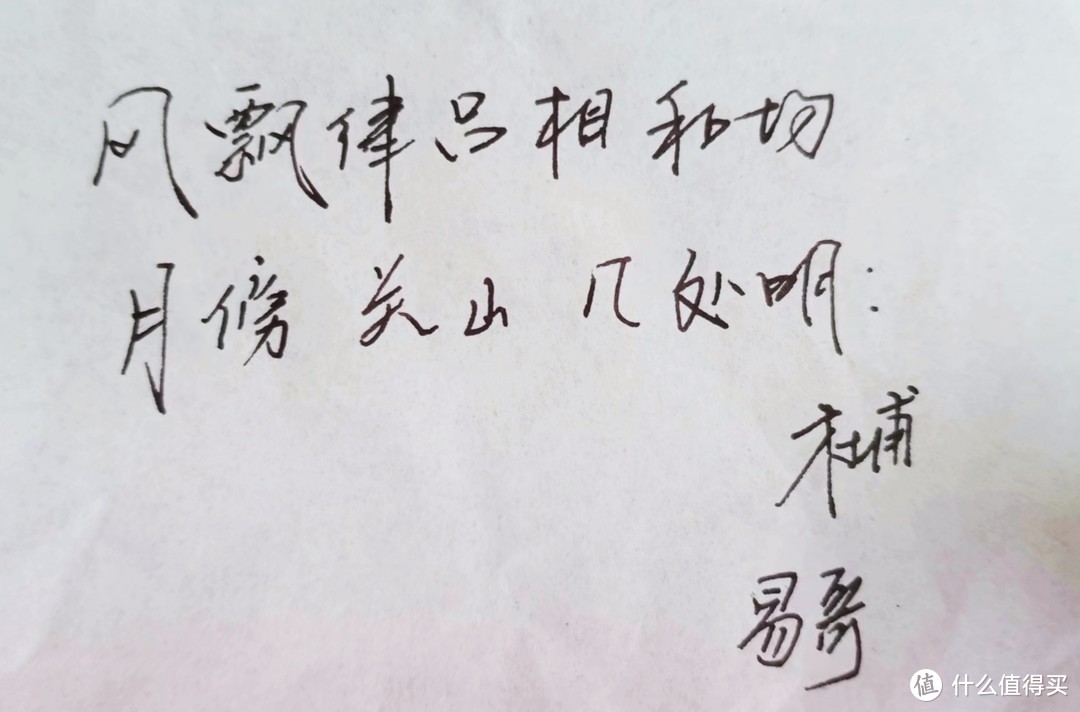 风飘律吕相和切
月傍关山几处明：
杜甫
易哥
值 什么值得买